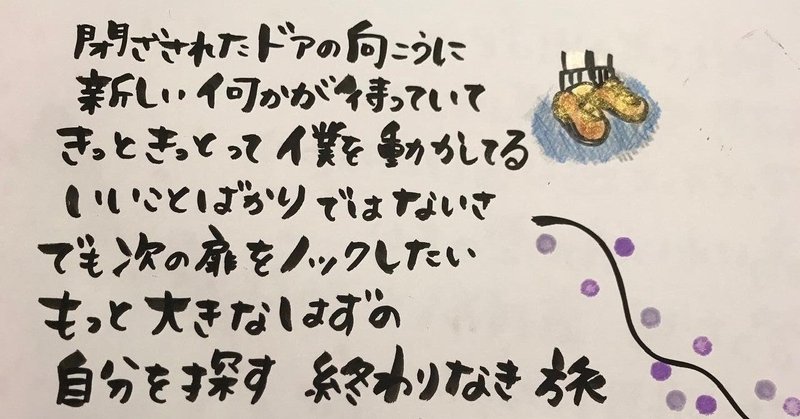 閉ざされたドアの向こうに
新しい何かが待っていて
きっときっとって僕を動かしてる
いいことばかりではないさ
でも次の扉をノックしたい
もっと大きなはずの
自分を探す 終わりなき旅